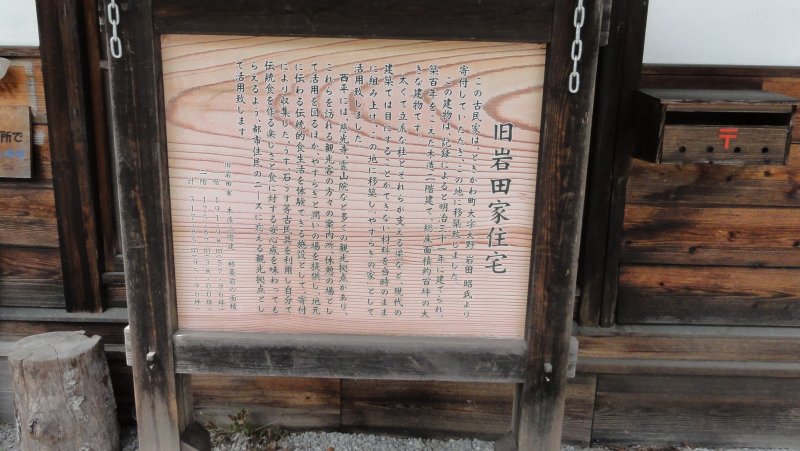 旧岩田家住宅
この古民家は、ときがわ町大字大野 岩田 昭氏より
寄付していただき、この地に移築致しました。
この建物は、記録によると明治三十一年に建てられ、
築百年をこえた木造二階建て、総床面積約百坪の大
きな建物です。
太くて立派な柱とそれらが支える梁など、現代の
建築では目にすることができない材料を当時のまま
に組み上げ、この地に移築し「やすらぎの家」として
活用致しました。
西平には、慈光寺、霊山院など多くの観光拠点があり、
これらを訪れる観光客の方々の案内所、休憩の場とし
て活用を図るほか、やすらぎと潤いの場を提供し、地元
に伝わる伝統的食生活を体験できる施設として、寄付
により収集した「うす」「石うす」等古民具を利用し自分で
伝統食を作る楽しさと食に対する安心感を味わっても
らえるよう、都市住民のニーズに応える観光拠点とし
て活用致します。
旧岩田家 木造二階建 移築前の面積
所で
〒